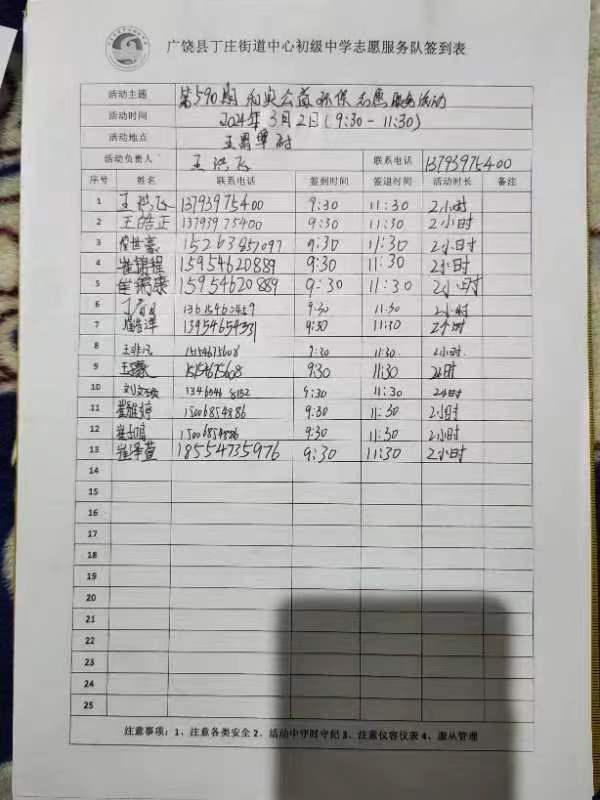 广饶县丁庄街道中心初级中学志愿服务队签到表
活动主题 第590期 和美公益环保志愿服务活动
活动时间 2024年3月2日(9:30-11:30)
活动地点 王署埠村
活动负责人 王洪飞 联系电话 13793975400
序号 姓名 联系电话 签到时间 签退时间 活动时长 备注
1 王洪飞 13793975400 9:30 11:30 2小时
2 王皓正 13793975400 9:30 11:30 2小时
3 世豪 15263857097 9:30 11:30 2小时
4 崔锦程 15954620889 9:30 11:30 2小时
5 崔 15954620889 9:30 11:30 2小时
6 9:30 11:30 2小时
7 9:30 11:30 2小时
8 王 15154675608 9:30 11:30 2小时
9 王 15154675608 9:30 11:30 2小时
10 刘 9:30 11:30 2小时
11 崔雅婷 15006854886 9:30 11:30 2小时
12 崔 15006854886 9:30 11:30 2小时
13 崔泽萱 18554735976 9:30 11:30 2小时
14
15
16
17
18
19
20
21
22
23
24
25
注意事项:1、注意各类安全 2、活动中守时守纪 3、注意仪容仪表 4、服从管理